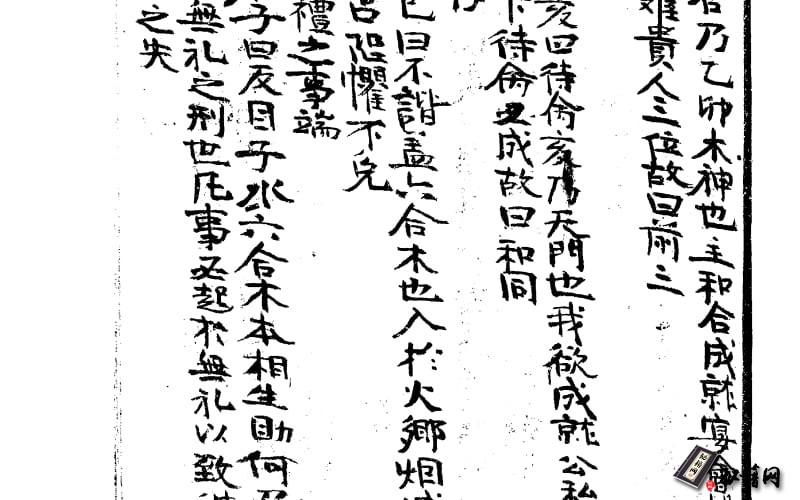 乃乙卯木神也主和合成就宴會
難貴人三位故曰前三
亥曰待命亥乃天門也我欲成就公私
下待命丑成故曰和同
巳曰不諧盖六合木也入於火鄉烟
呂恐懼不免
禮之事端
子曰反目子水六合木本相生助何
無礼之刑也凡事必起於無礼以致
之失
秘籍网